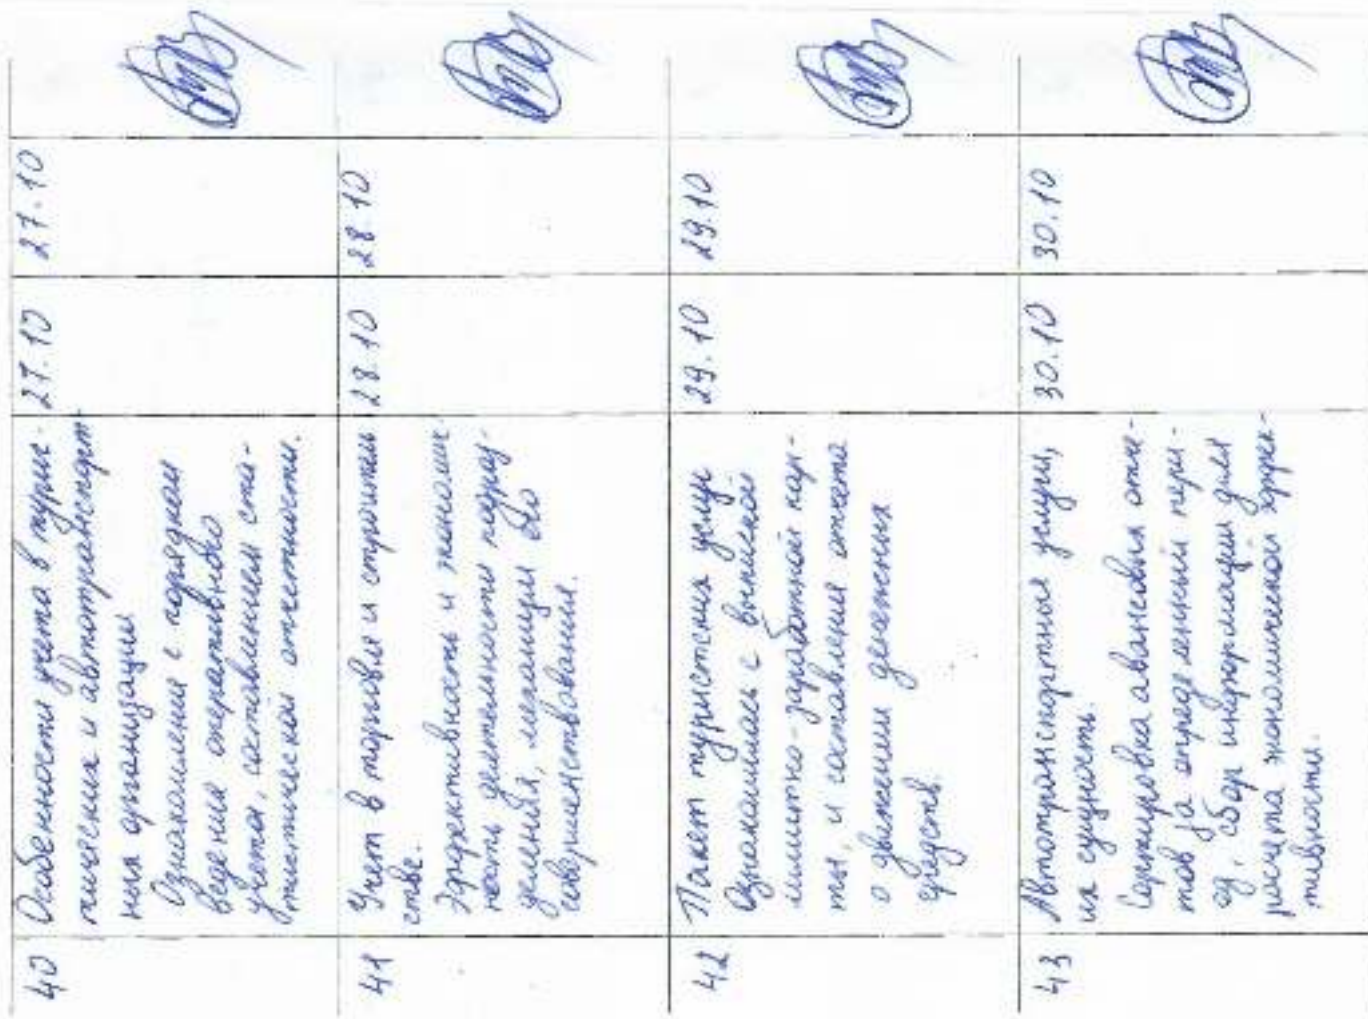 40 Особенности учета в турис- 27.10 27.10
тических и автотранспорт
ных организациях
Ознакомление с порядком
ведения оперативного
учета, составлением ста-
тистической отчетности.
41 Учет в торговле и строитель 28.10 28.10
стве.
Эффективность и экономич-
ность деятельности подраз-
деления, механизм его
совершенствования.
42 Пакет туристских услуг 29.10 29.10
Ознакомилась с выпиской
лимитно-заработной кар-
ты, и составления отчета
о движении денежных
средств.
43 Автотранспортные услуги, 30.10 30.10
их сущность.
Сортировка авансовых отче-
тов за определенный пери-
од, сбор информации для
расчета экономической эффек-
тивности.